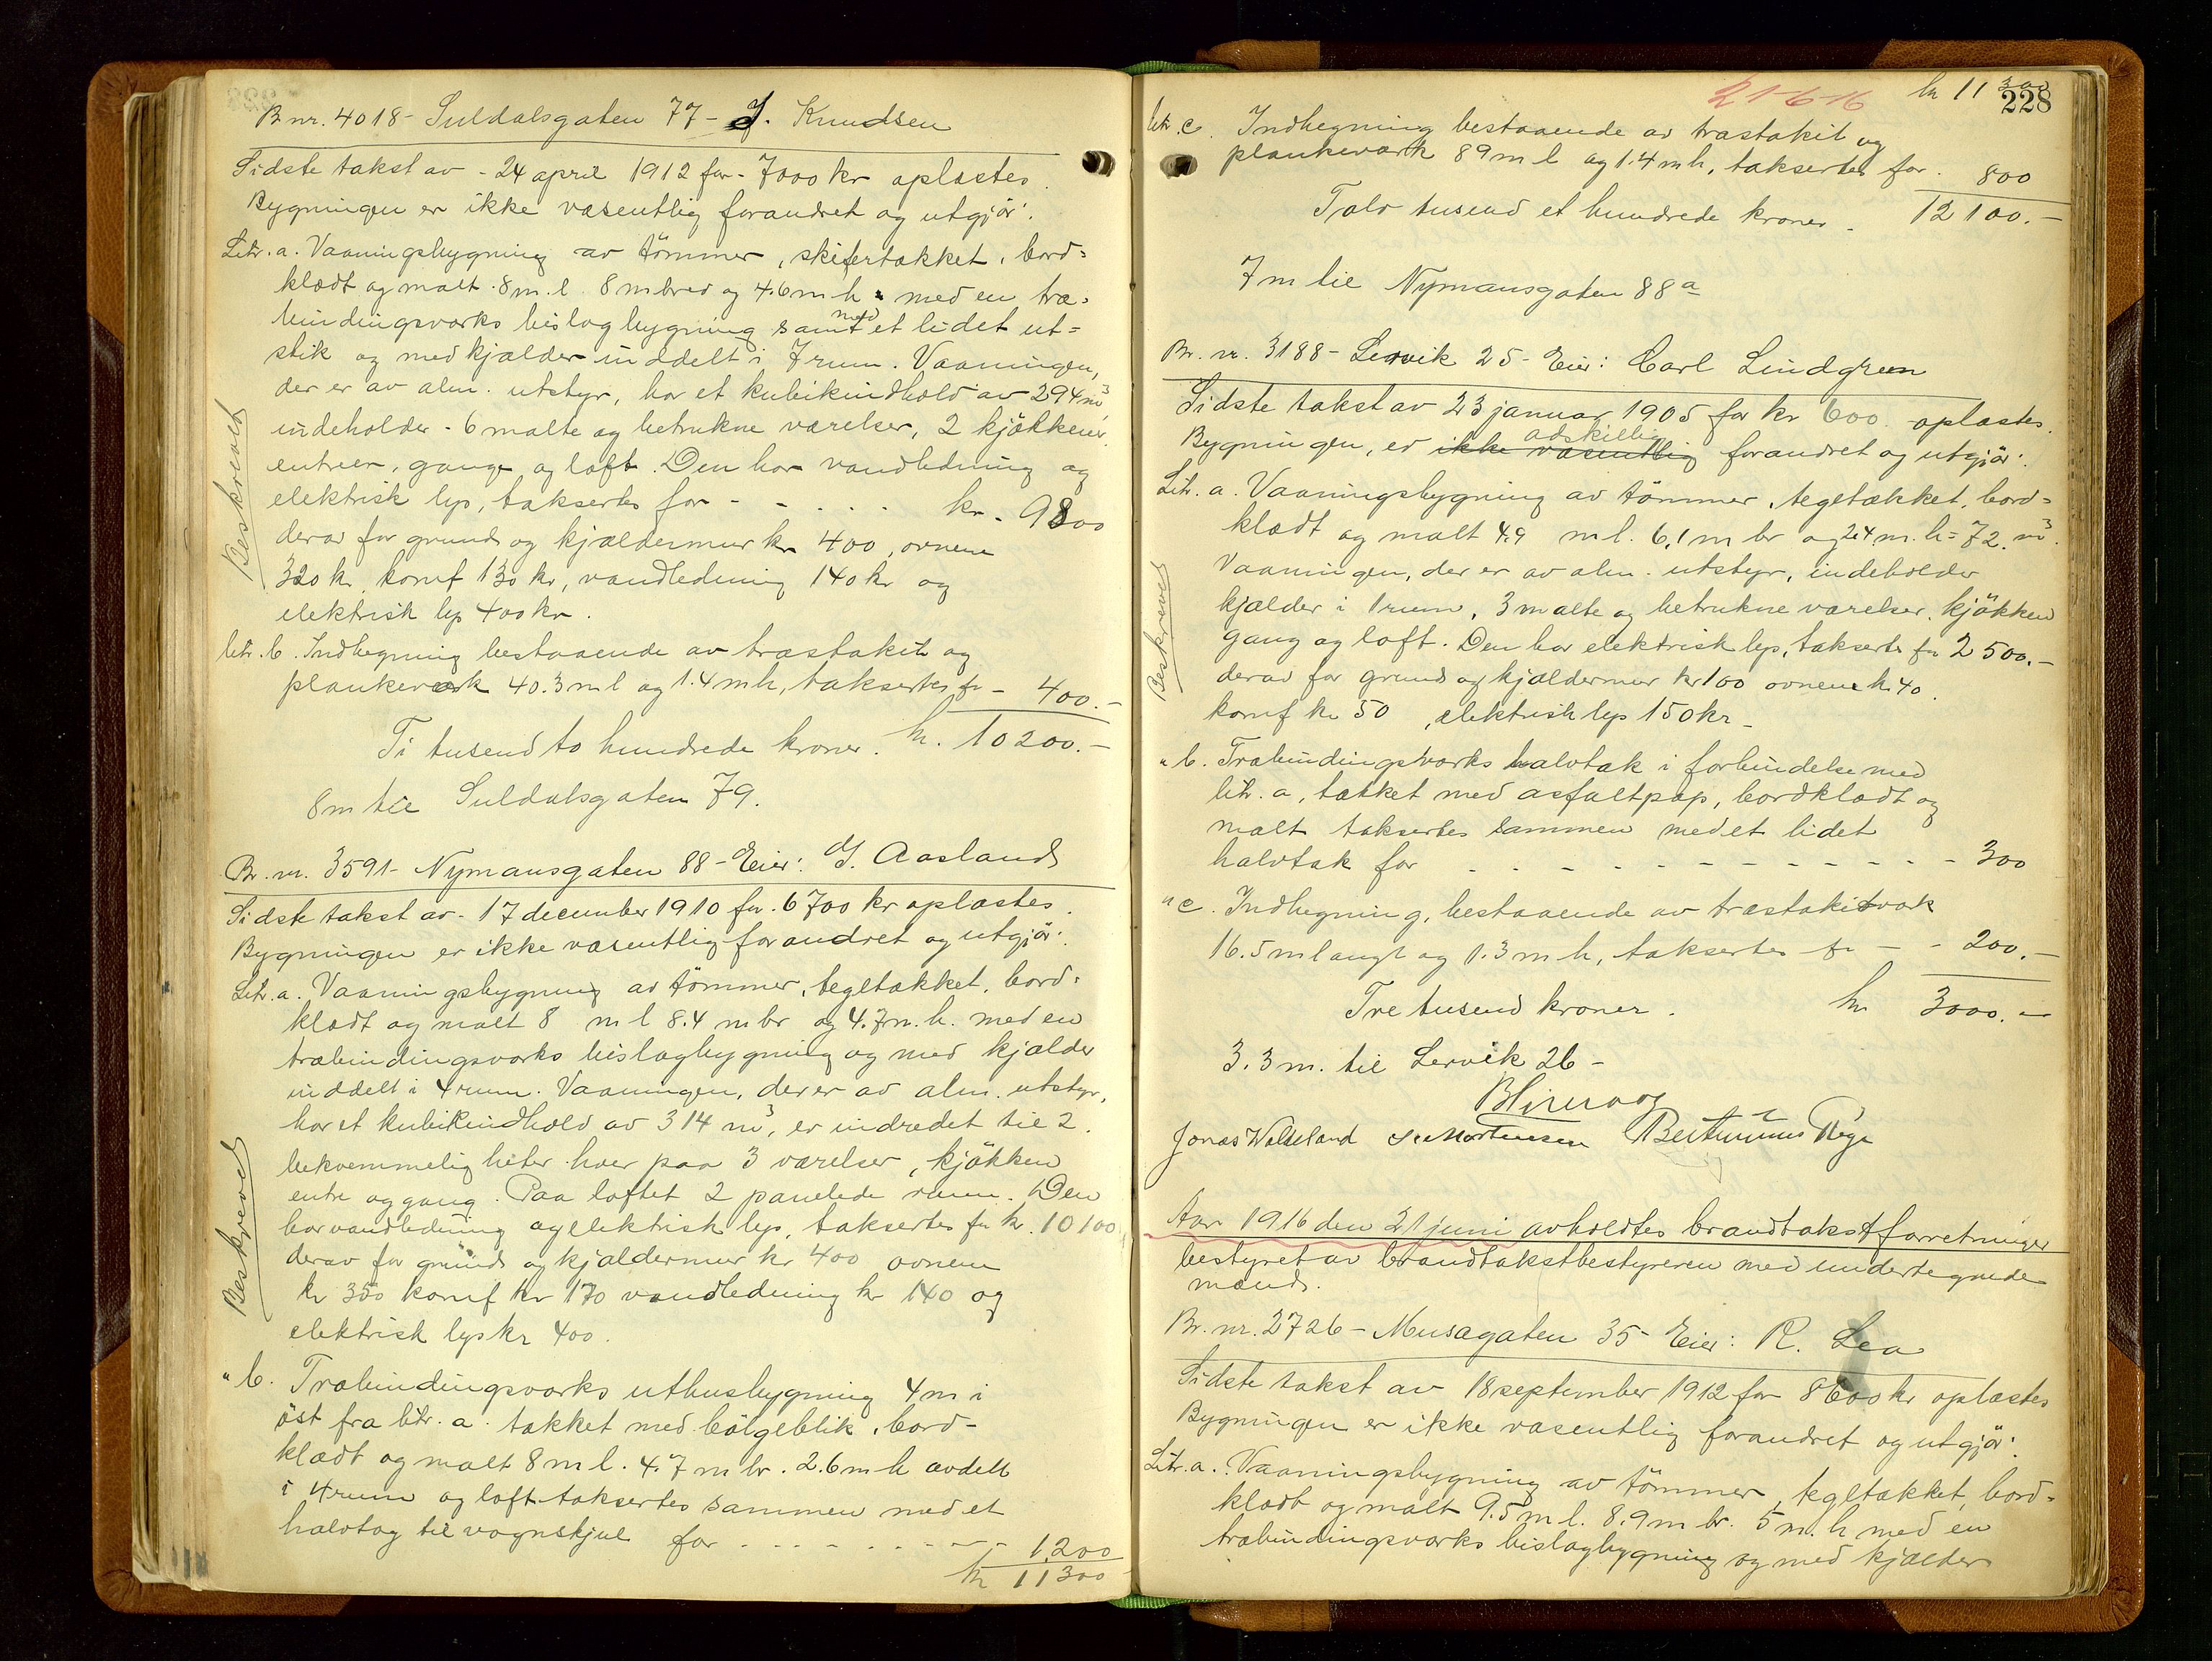 Br nr. 4018 - Suldalsgaten 77 - J. Knudsen
Sidste takst av - 24 april 1912 for - 7000 kr oplæstes.
Bygningen er ikke væsentlig forandret og utgjör:
Litr. a. Vaaningsbygning av tömmer, skifertækket, bord=
klædt og malt 8 m. l 8 m bred og 4.6 m h. med en træ-
bindingsværks bislagbygning samt med et lidet ut=
stik og med kjælder inddelt i 7 rum. Vaaningen,
der er av alm. utstyr, har et kubikindhold av 294 m³,
indeholder - 6 malte og betrukne værelser, 2 kjökkener,
entreer, gange og loft. Den har vandledning og
elektrisk lys, taksertes for - - . . . . kr. 9800
derav for grund og kjældermur kr 400, ovnene
320 kr, komf 130 kr, vandledning 140 kr og
elektrisk lys 400 kr.
Beskrevet
litr. b. Indhegning bestaaende av træstakit og
plankeværk 40.3 m l og 1.4 m h, taksertes fr - 400.-
Ti tusend to hundrede kroner. kr. 10200.-
8 m til Suldalsgaten 79.
Br. nr. 3591 - Nymansgaten 88 - Eier: G. Aasland
Sidste takst av - 17 december 1910 for. 6700 kr oplæstes.
Bygningen er ikke væsentlig forandret og utgjör:
Litr. a. Vaaningsbygning av tömmer, tegltækket, bord=
klædt og malt 8 m l 8.4 m br og 4.7 m. h. med en
træbindingsværks bislagbygning og med kjælder
inddelt i 4 rum. Vaaningen, der er av alm. utstyr,
har et kubikindhold av 314 m³, er indredet til 2
bekvemmeligheter hver paa 3 værelser, kjökken
entre og gang. Paa loftet 2 panelede rum. Den
har vandledning og elektrisk lys, taksertes fr kr. 10100
derav for grund og kjældermur kr 400 ovnene
kr 350 komf kr 170 vandledning kr 140 og
elektrisk lys kr 400.
Beskrevet
" b. Træbindingsværks uthusbygning 4 m i
öst fra litr. a. tækket med bölgeblik, bord-
klædt og malt 8 m l. 4.7 m br. 2.6 m h avdelt
i 4 rum og loft taksertes sammen med et
halvtag til vognskjul for - - - - - - - - 1200
kr 11300
21-6-16 kr 11300
228
litr. c. Indhegning bestaaende av træstakit og
plankeværk 89 m l og 1.4 m h, taksertes for. 800
Tolv tusend et hundrede kroner. 12100.-
7 m til Nymansgaten 88 a
Br. nr. 3188 - Lervik 25 - Eier: Carl Lindgren
Sidste takst av 23 januar 1905 for kr 600 oplæstes.
Bygningen, er ikke væsentlig adskillig forandret og utgjör:
Litr. a. Vaaningsbygning av tömmer, tegltækket, bord=
klædt og malt 4.9 m l. 6,1 m br og 2.4 m. h = 72. m³.
Vaaningen, der er av alm. utstyr, indeholder
kjælder i 1 rum, 3 malte og betrukne værelser, kjökken
gang og loft. Den har elektrisk lys, taksertes fr 2500.-
derav for grund og kjældermur kr 100 ovnene kr 40.
komf kr 50, elektrisk lys 150 kr -
Beskrevet
" b. Træbindingsværks halvtak i forbindelse med
litr. a, tækket med asfaltpap, bordklædt og
malt taksertes sammen med et lidet
halvtak for - - - - - - - - - - 300
" c. Indhegning, bestaaende av træstakitværk
16.5 m langt og 1.3 m h, taksertes fr - - 200.-
Tre tusend kroner. kr 3000.-
3.3 m. til Lervik 26 -
Jonas Walseland Mortensen
Aar 1916 den 21 juni avholdtes brandtakstforretninger
bestyret av brandtakstbestyreren med undertegnede
mænd.
Br. nr. 2726 - Musagaten 35 - Eier: R. Lea
Sidste takst av 18 september 1912 for 8600 kr oplæstes
Bygningen er ikke væsentlig forandret og utgjör:
Litr. a. Vaaningsbygning av tömmer, tegltækket, bord=
klædt og malt 9.5 m l. 8.9 m br. 5 m. h med en
træbindingsværks bislagbygning og med kjælder